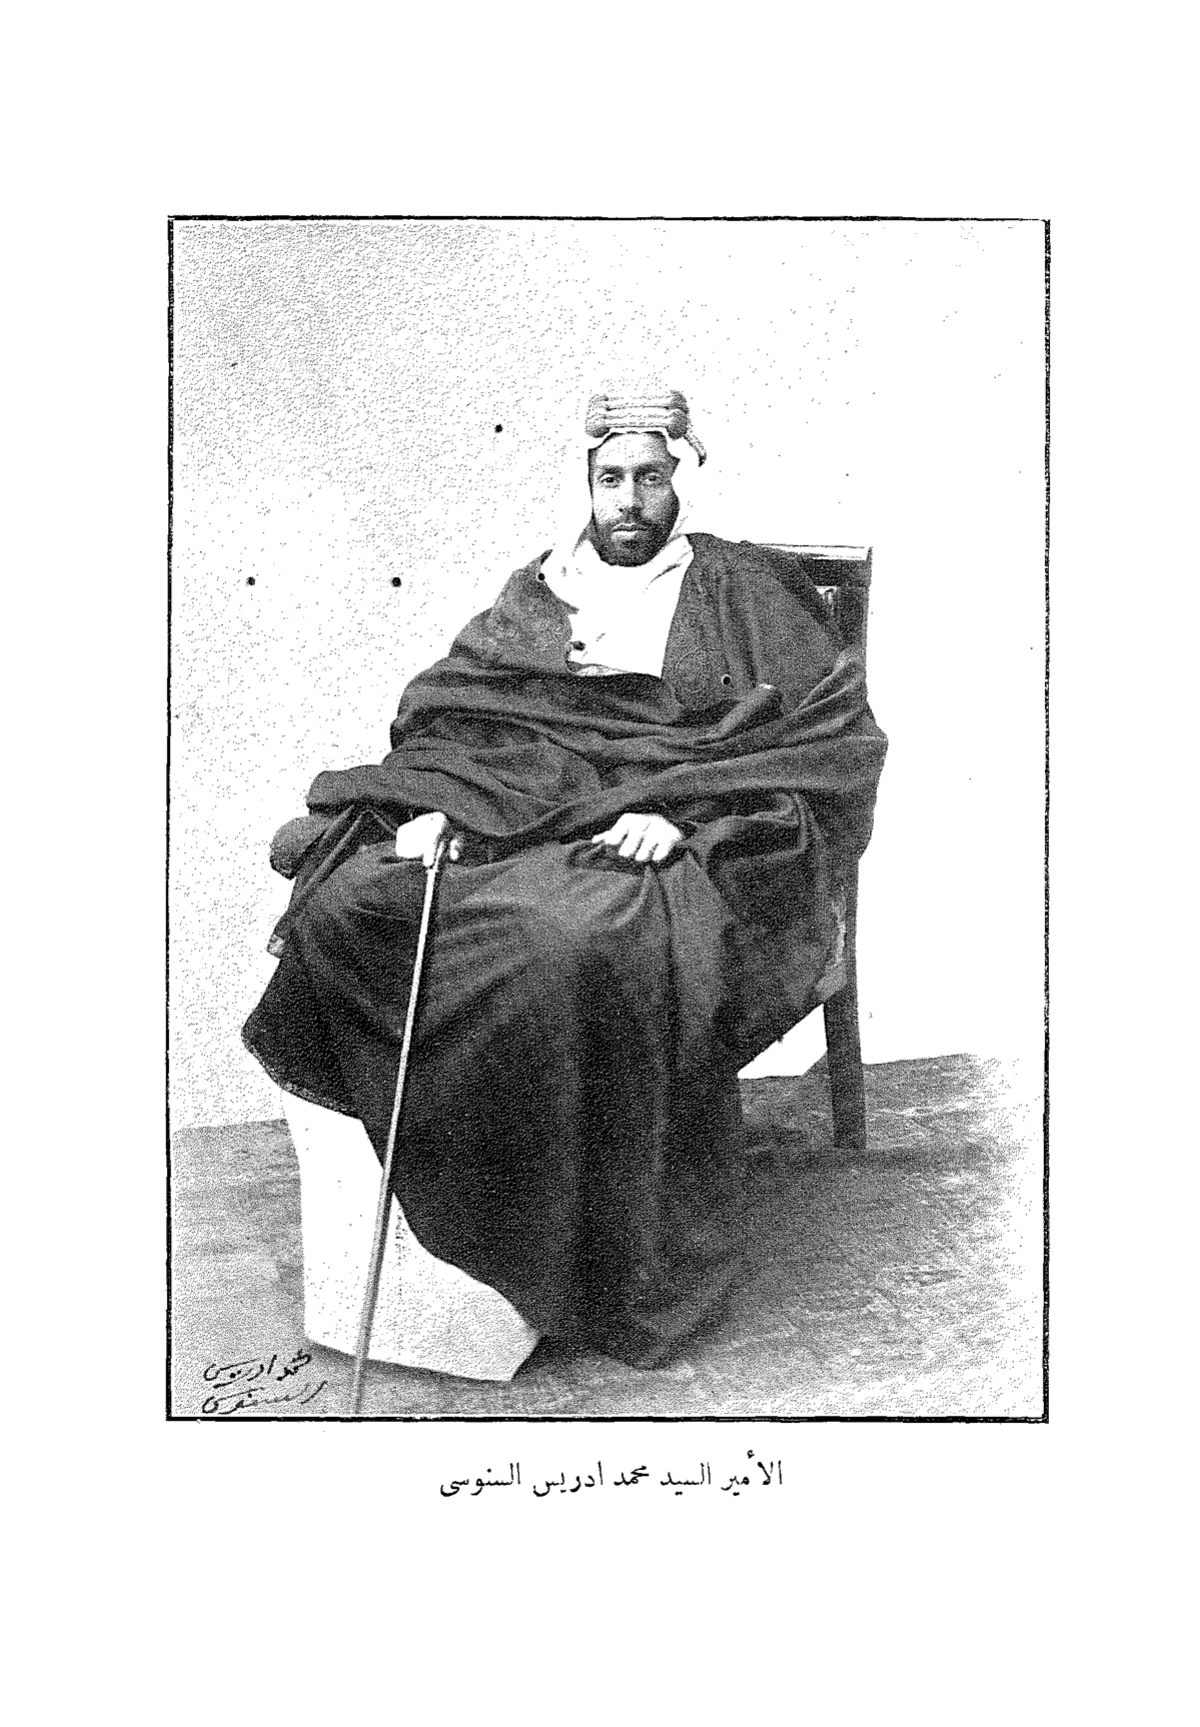 محمد ادريس
السنوسى
الأمير السيد محمد ادريس السنوسى